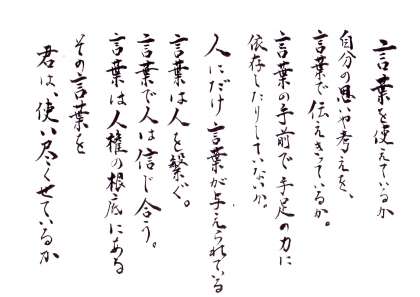 言葉を使えているか
自分の思いや考えを、
言葉で伝えきっているか。
言葉の手前で手足の力に
依存したりしていないか。
人にだけ言葉が与えられている
言葉は人を繋ぐ。
言葉で人は信じ合う。
言葉は人権の根底にある
その言葉を
君は、使い尽くせているか